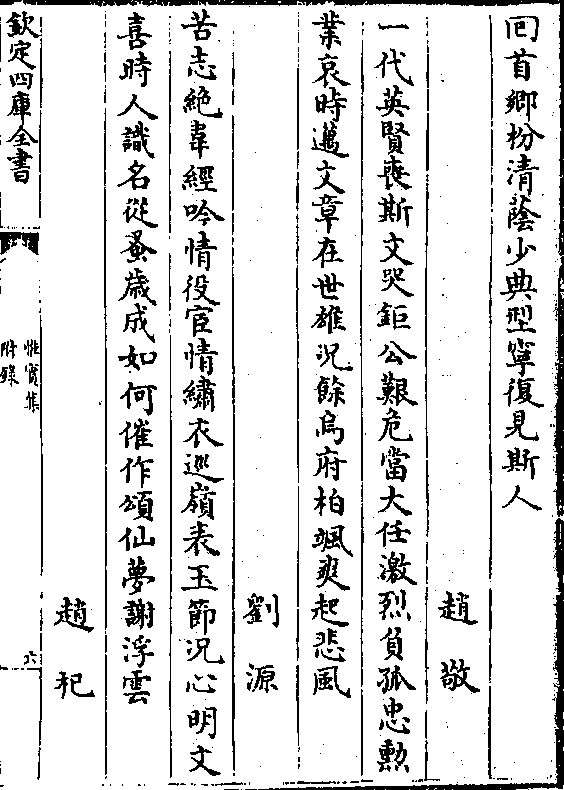 回首鄉枌清蔭少典型寧復見斯人
趙敬
一代英賢喪斯文哭鉅公艱危當大任激烈負孤忠勲
業哀時邁文章在世雄況餘烏府柏颯爽起悲風
劉源
苦志絶韋經吟情役宦情繡衣巡嶺表玉節況心明文
喜時人識名從蚤歲成如何催作頌仙夢謝浮雲
趙𥘉
欽定四庫全書
惟實集
附錄
六